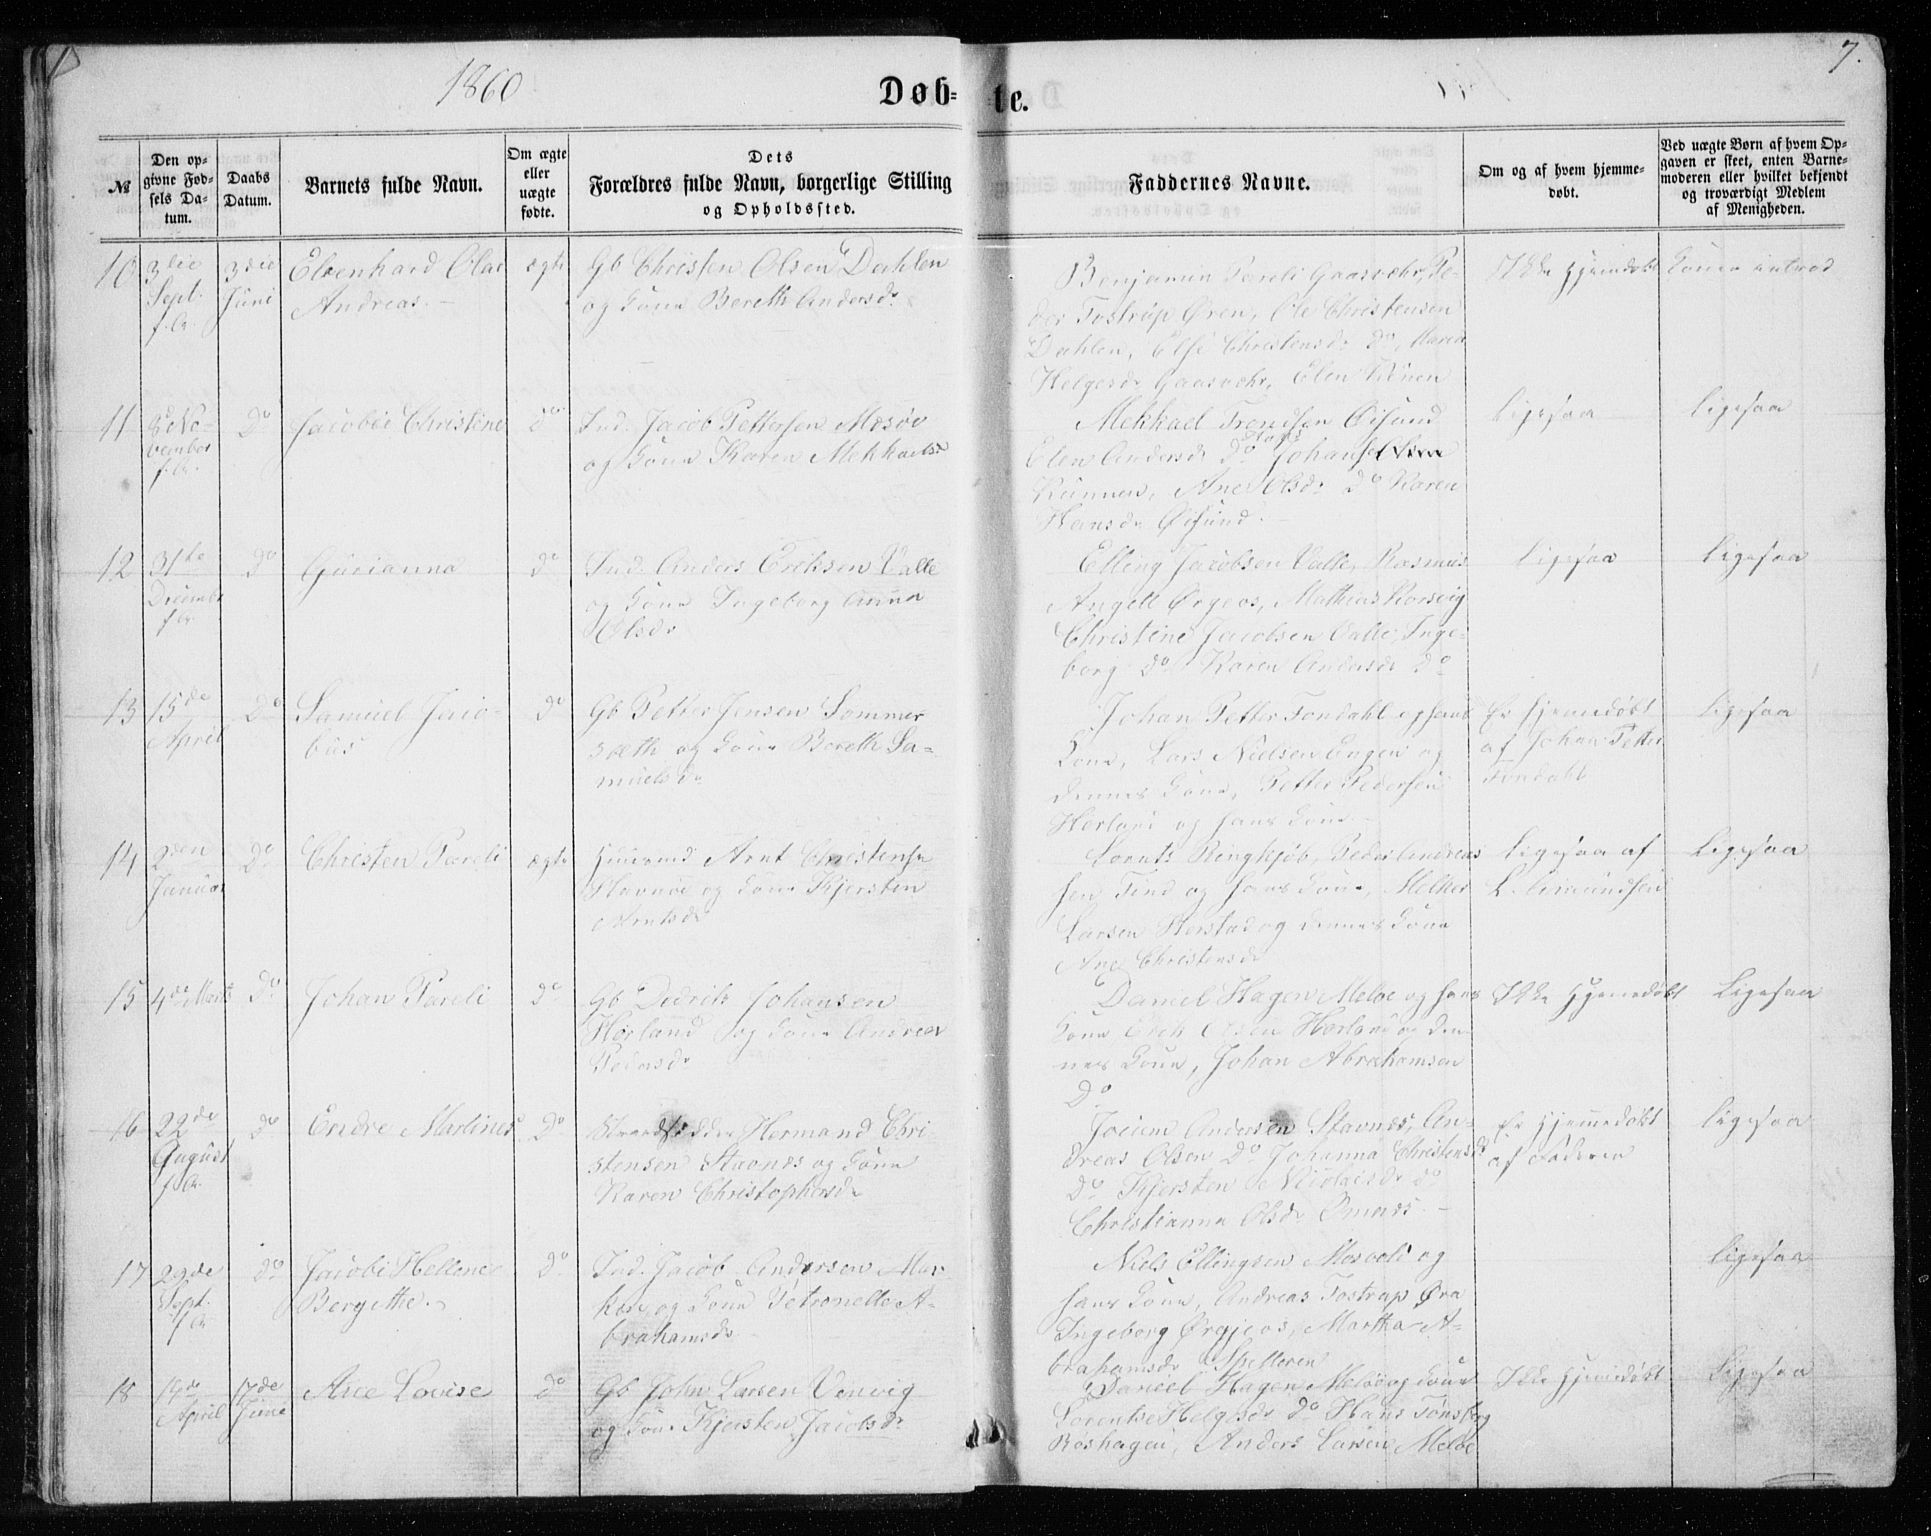 1860
Døb-
te.
7.
№
Den op-
givne Fød-
sels Da-
tum.
Daabs
Datum.
Barnets fulde Navn.
Om ægte
eller
uægte
fødte.
Dets
Forældres fulde Navn, borgerlige Stilling
og Opholdssted.
Faddernes Navne.
Om og af hvem hjemme-
døbt.
Ved uægte Børn af hvem Op-
gaven er skeet, enten Barne-
moderen eller hvilket bekjendt
og troværdigt Medlem
af Menigheden.
10
3die
Sept.
f. Ar
3die
Juni
Olai
Andreas.
ægte
Gb Christen Olsen Dahlen
og Kone Bereth Andersdr
Benjamin Pareli Gaasvær, Pe-
der Tostrup Øren, Ole Christensen
Dahlen, Else Christensdr Do, Maren
Helgesdr Gaasvær, Elen
Ikke hjemdøbt
Konen introd
11
8de No-
vember
f. Ar.
Do
Jacobie Christine
do
Ind. Jacob Pettersen Mesøe
og Kone Karen Mekkaelsdr
Mekkael Trondsen Øisund
Elen Andersdr Do Johan
Kunnen, Ane Olsdr Do Karen
Hansdr Øisund.
Ligesaa
Ligesaa
12
31te
Decembr
f. Ar
Do
Gurianna
do
Ind. Anders Eriksen Valle
og Kone Ingeborg Anna
Olsdr
Elling Jacobsen Valle, Rasmus
Angell Ørgeos, Mathias Korsvig
Christine Jacobsen Valle, Inge-
borg Do Karen Andersdr Do
Ligesaa
Ligesaa
13
15de
April
Do
Samuel Jaco-
bus
do
Gb Petter Jensen Sommer
sæth og Kone Bereth Sa-
muelsdr
Johan Petter Fondahl og hans
Kone, Lars Nielsen Engen og
dennes Kone, Petter Pedersen
Horland og hans Kone
Er hjemmedøbt
af Johan Petter
Fondahl
Ligesaa
14
2den
Januar
Do
Christen Pareli
ægte
Huusmd Arnt Christensen
Stavnæs og Kone Kjersten
Arntsdr
Lornts Ringkjøb, Peder Andreas
sen Find og hans Kone, Melker
Larsen Horstad og dennes Kone
Ane Christensdr
Ligesaa af
L. Amundsen
Ligesaa
15
4de Marts
Do
Johan Pareli
do
Gb Dedrik Johansen
Horland og Kone Andrea
Pedersdr
Daniel Hagen Meløe og hans
Kone Erik Olsen Horland og den-
nes Kone, Johan Abrahamsen
Do
Ikke hjemmedøbt
Ligesaa
16
22de
August
f. Ar
do
Endre Martines
Do
Strandsidder Hermand Chri-
stensen Stavnes og Kone
Karen Christophersdr
Jocum Andersen Stavnes, An-
dreas Olsen Do Johanna Christensdr
Do Kjersten Nicolaisdr Do
Christianna Olsdr Omnes.
Er hjemmedøbt
af Faderen
Ligesaa
17
29de
Sept.
f. Ar
do
Jacobe Hellene
Bergithe.
Do
Ind. Jacob Andersen Mar-
kere og Kone Petronelle A-
brahamsdr
Niels Ellingsen Mosvold og
hans Kone, Andreas Tostrup Øra
Ingeborg Ørgjeos, Martha A-
brahamsdr Spilderen
Ligesaa
18
14de
April
17de
Juni
Ane Lovise
do
Gb John Larsen Venvig
og Kone Kjersten Jacobsdr
Daniel Hagen Meløe og Kone
Lorentse Helgesdr Do Hans Tønsberg
Røshagen, Anders Larsen Meløe
Ikke hjemedøbt
Ligesaa